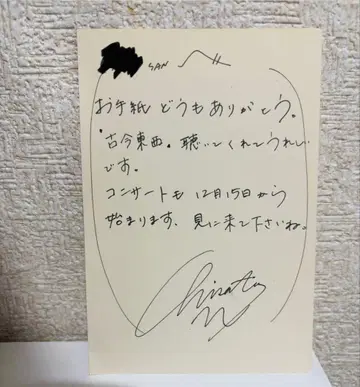 SAN へ
お手紙どうもありがとう。
古今東西、聴いてくれてうれしい
です。
コンサートも12月15日から
始まります、見に来て下さいね。
Chisato